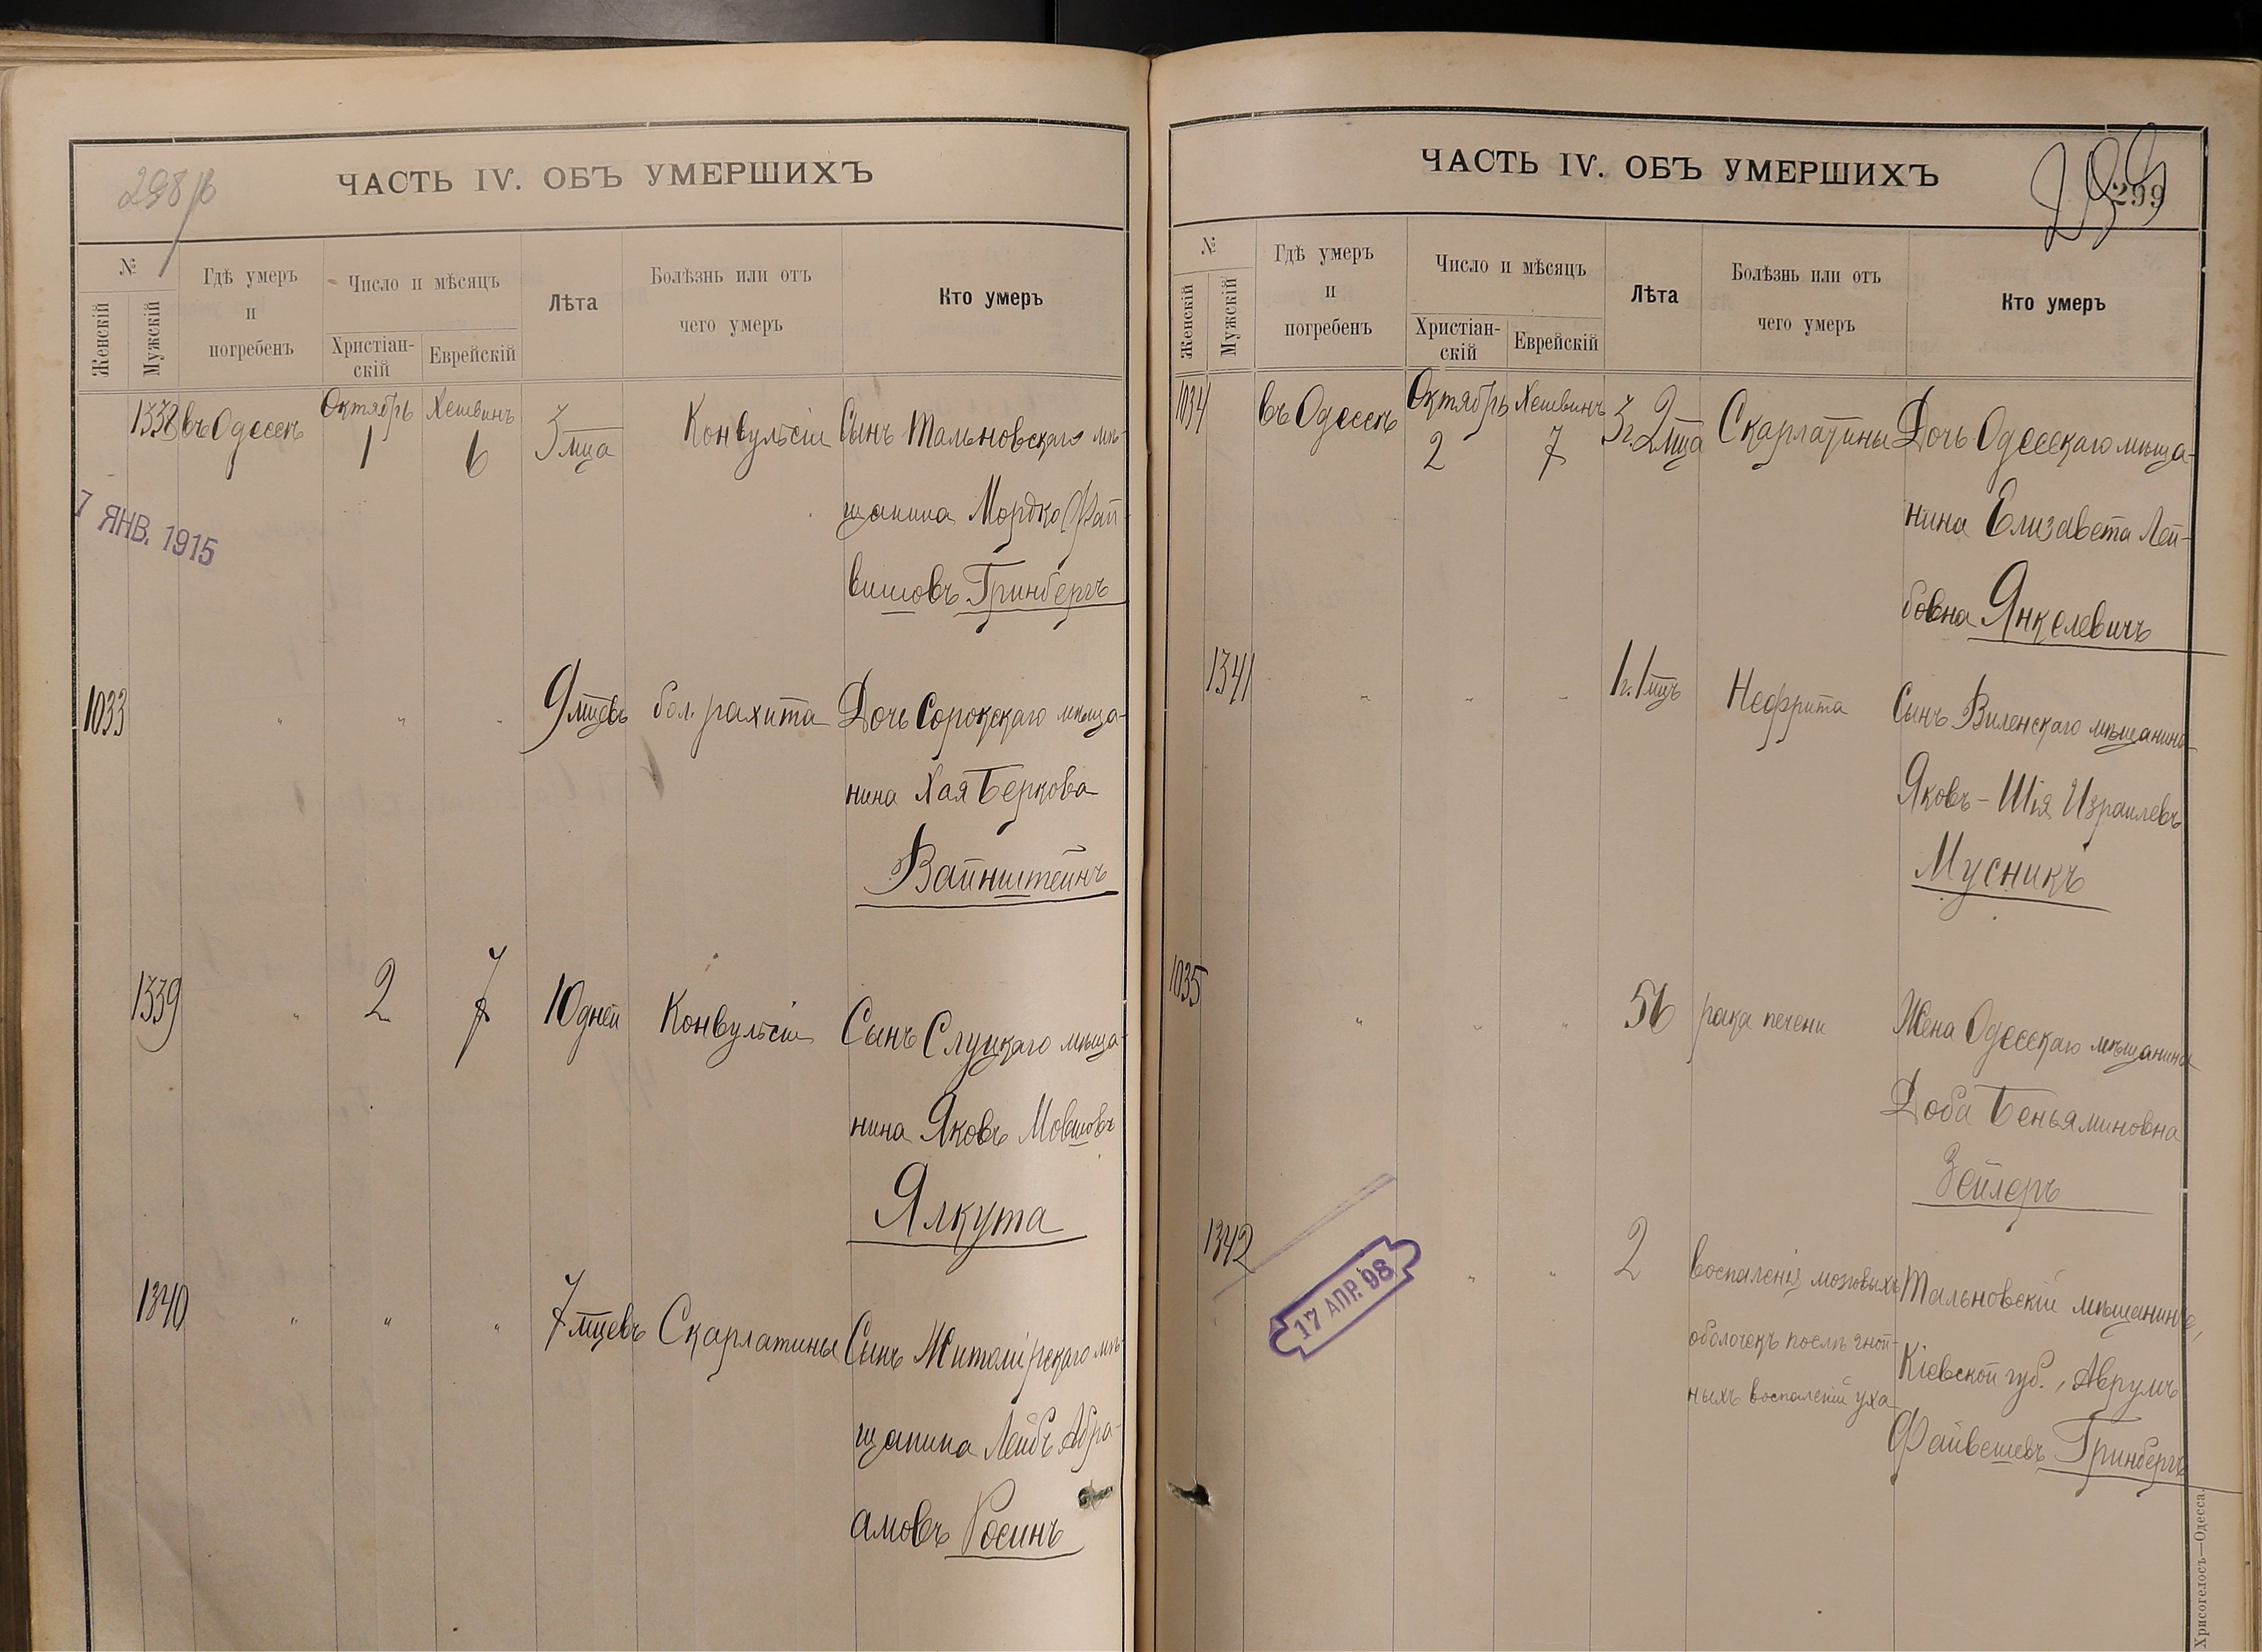 298/б
ЧАСТЬ IV. ОБЪ УМЕРШИХЪ
№
Женскій
Мужскій
Гдѣ умеръ
и
погребенъ
Число и мѣсяцъ
Христіан-
скій
Еврейскій
Лѣта
Болѣзнь или отъ
чего умеръ
Кто умеръ
1338 въ Одессѣ Октябрь 1 Хешвинъ 6 3 мца Конвульсіи Сынъ Тальновскаго мѣ-
щанина Мордко Фай-
вишовъ Гринбергъ
7 ЯНВ. 1915
1033 " " " 9 мцевъ бол. рахита Дочь Сорокскаго мѣща-
нина Хая Беркова
Вайнштейнъ
1339 " 2 7 10 дней Конвульсіи Сынъ Слуцкаго мѣща-
нина Яковъ Мовшовъ
Ялкута
1340 " " " 7 мцевъ Скарлатины Сынъ Житомірскаго мѣ-
щанина Лейбъ Абра-
амовъ Росинъ
ЧАСТЬ IV. ОБЪ УМЕРШИХЪ
299
299
№
Женскій
Мужскій
Гдѣ умеръ
и
погребенъ
Число и мѣсяцъ
Христіан-
скій
Еврейскій
Лѣта
Болѣзнь или отъ
чего умеръ
Кто умеръ
1034 въ Одессѣ Октябрь 2 Хешвинъ 7 3 г. 2 мца Скарлатины Дочь Одесскаго мѣща-
нина Елизавета Лей-
бовна Янкелевичъ
1341 " " " 1 г. 1 мцъ Нефрита Сынъ Виленскаго мѣщанина
Яковъ-Шія Израилевъ
Мусникъ
1035 " " " 56 рака печени Жена Одесскаго мѣщанина
Доба Беньяминовна
Зейлеръ
1342 " " 2 воспаленія мозговыхъ Тальновскій мѣщанинъ,
оболочекъ послѣ гной- Кіевской губ., Аврумъ
ныхъ воспаленій уха Файвешевъ Гринбергъ
17 АПР. 98
Хрисогелосъ—Одесса.